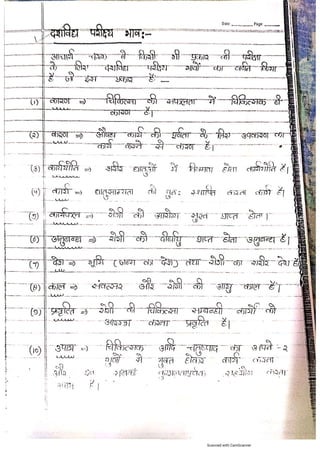 Date ______ Page ______
दशविध परीक्ष्य भाव:-
आचार्य चरक ने किसी भी प्रकार की परीक्षा
के लिए दशविध परीक्ष्य भावों का वर्णन किया
है जो इस प्रकार है —
(1) कारण ⇒ चिकित्सा की सफलता में चिकित्सक ही
कारण है।
(2) करण ⇒ औषध कार्य की पूर्णता के लिए उपकरण का
कार्य करने से करण है।
(3) कार्ययोनि ⇒ शरीर धातुओं में विषमता होना कार्ययोनि है।
(4) कार्य ⇒ धातुसाम्यता को पुन: स्थापित करना कार्य है।
(5) कार्यफल ⇒ रोगी को आरोग्य सुख प्राप्त होना।
(6) अनुबन्ध ⇒ रोगी को दीर्घायु प्राप्त होना अनुबन्ध है।
(7) देश ⇒ भूमि (जन्म का देश) तथा रोगी का शरीर देश है
(8) काल ⇒ संवत्सर और रोगी की आयु काल है।
(9) प्रवृत्ति ⇒ रोगी की चिकित्सा सम्बन्धी कार्यो को
आरम्भ करना प्रवृत्ति है।
(10) उपाय ⇒ चिकित्सक आदि चतुष्पाद का अपने-2
गुणों से युक्त होकर कार्य करना
और इन सबका कुशलतापूर्वक करना
उपाय है।
Scanned with CamScanner